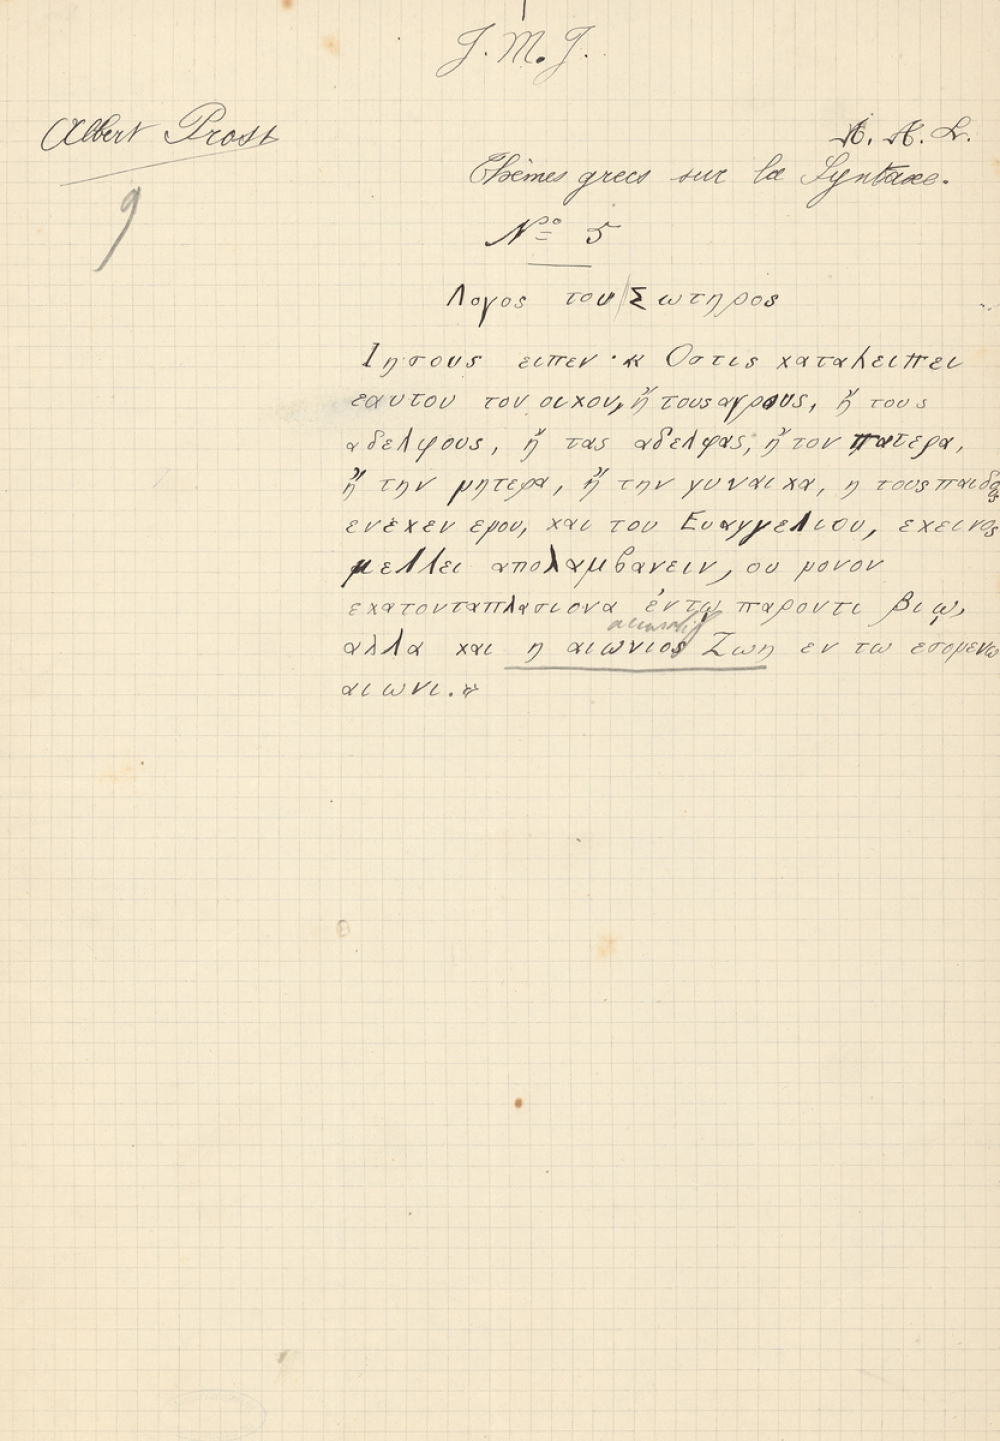 J. M. J.
Albert Prost
A. A. L.
Thèmes grecs sur la Syntaxe.
9
Nº 5
Λογος του Σωτηρος
Ιησους ειπεν · « Οστις καταλειπει
εαυτου τον οικον, ἤ τους αγρους, ἤ τους
αδελφους, ἤ τας αδελφας, ἤ τον πατερα,
ἤ την μητερα, ἤ την γυναικα, η τους παιδας
ενεκεν εμου, και του Ευαγγελιου, εκεινος
μελλει απολαμβανειν, ου μονον
εκατονταπλασιονα ἐν τῳ παροντι βιῳ,
αλλα και η αιωνιος Ζωη εν τω εσομενω
αιωνι. »